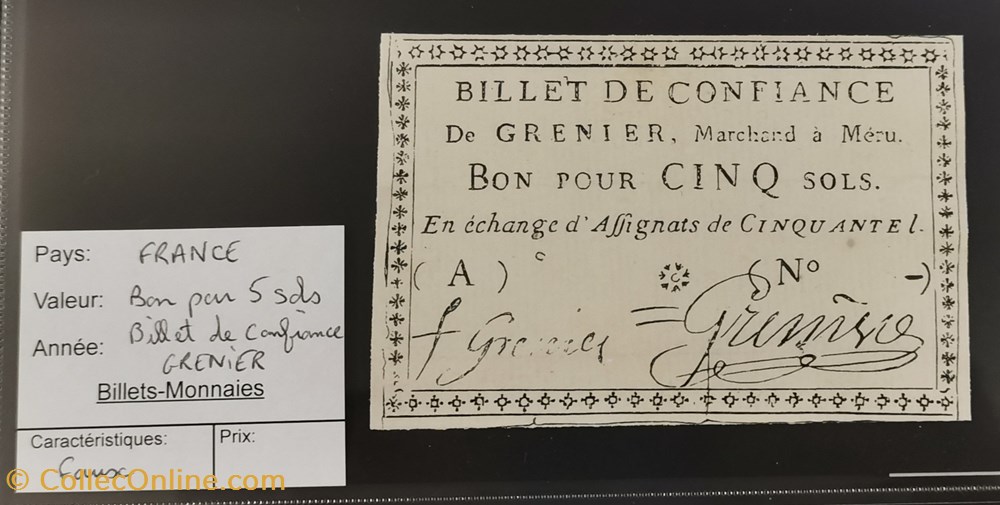 BILLET DE CONFIANCE
De GRENIER, Marchand à Méru.
BON POUR CINQ SOLS.
En échange d'Assignats de CINQUANTE l.
( A ) (Nº -)
Grenier Grenier
Pays: FRANCE
Valeur: Bon pour 5 sols
Billet de Confiance
Année:
GRENIER
Billets-Monnaies
Caractéristiques: Prix:
Faux
© CollecOnline.com